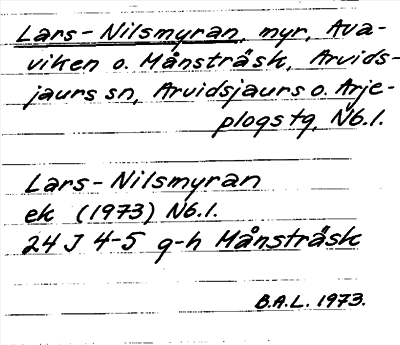 Lars-Nilsmyran, myr, Ava-
viken o. Månsträsk, Arvids-
jaurs sn, Arvidsjaurs o. Arje-
plogs tg, Nb.l.
Lars-Nilsmyran
ek (1973) Nb.l.
24 J 4-5 g-h Månsträsk
B.A.L. 1973.